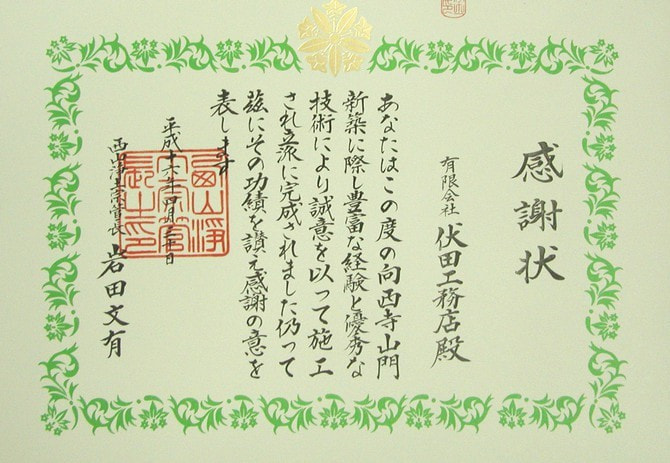 感謝状
有限会社 伏田工務店殿
あなたはこの度の向西寺山門
新築に際し豊富な経験と優秀な
技術により誠意を以って施工
され立派に完成されました仍って
茲にその功績を讃え感謝の意を
表します
平成十六年四月三十日
西山浄土宗管長 岩田文有